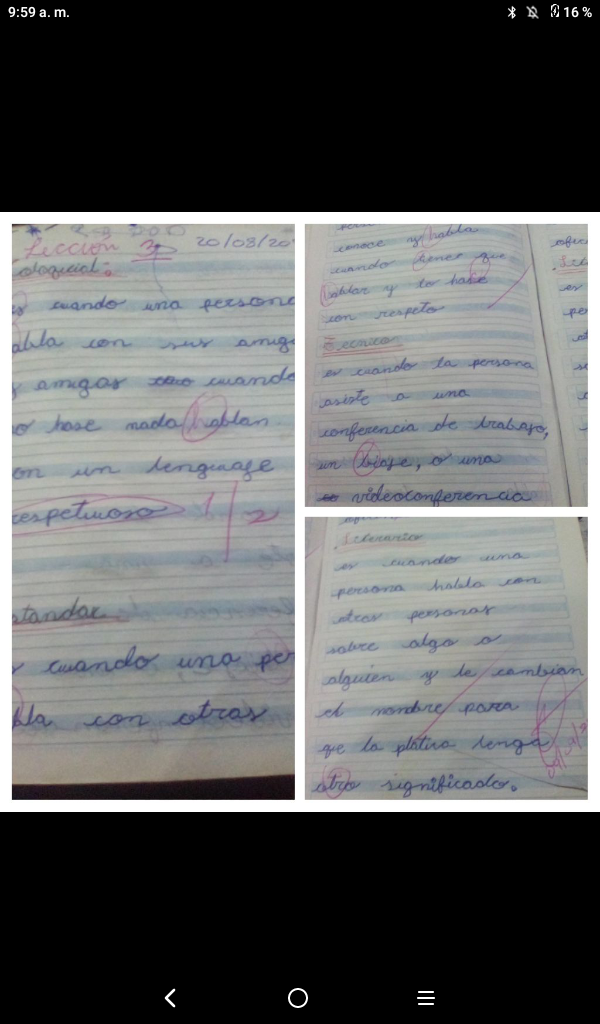 9:59 a. m.
16 %
Lección 3
20/08/20
oloquial:
es cuando una persona
abla con sus amigo
y amigas cuando
o hase nada hablan
on un lenguaje
respetuoso 1/2
standar
cuando una per
bla con otras
conoce y habla
cuando tienes que
hablar y lo hase
con respeto
Técnico
es cuando la persona
asiste a una
conferencia de trabajo,
un biaje, o una
videoconferencia
Literario
es cuando una
persona habla con
otras personas
sobre algo o
alguien y le cambian
el nombre para
que la platica tenga
otro significado.
es